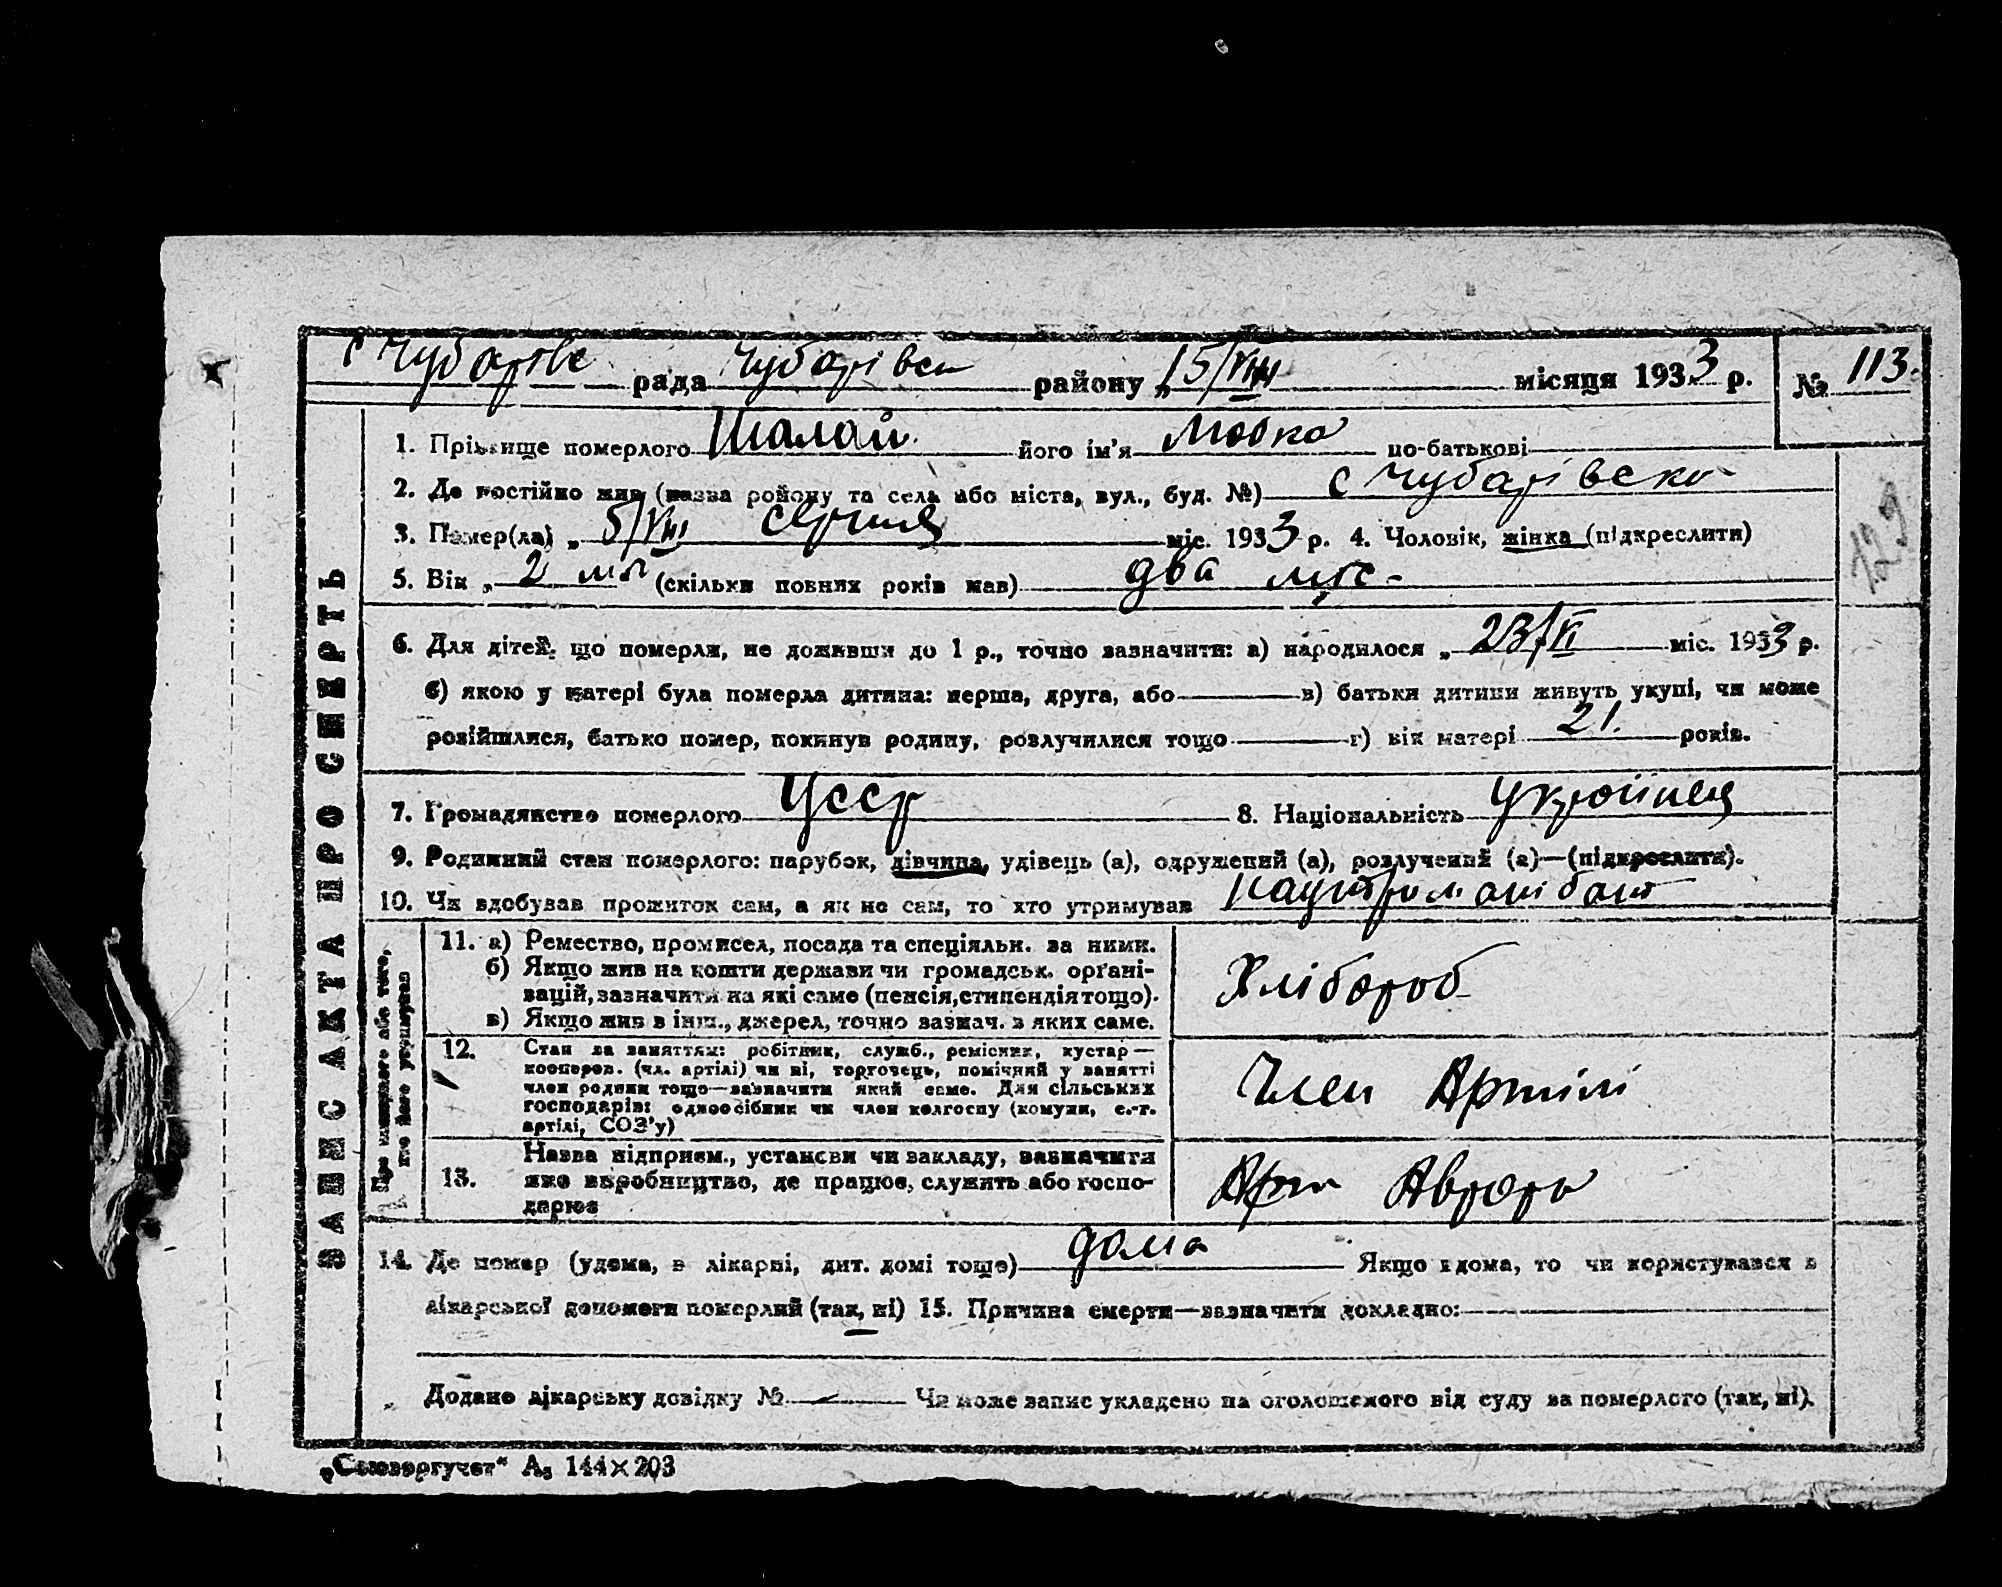 с Чубарівс рада Чубарівск району „15/VIII місяця 1933 р. № 113.
1. Прізвище померлого Шалай його ім'я по-батькові
2. Де постійно жив (назва району та села або міста, вул., буд. №) с Чубарівско
3. Помер(ла) „ 5/VIII серпня міс. 1933 р. 4. Чоловік, жінка (підкреслити)
129
5. Вік „ 2 міс (скільки повних років мав) два міс-
6. Для дітей, що померли, не доживши до 1 р., точно зазначити: а) народилося „ 23/VI міс. 1933 р.
б) якою у матері була померла дитина: перша, друга, або в) батьки дитини живуть укупі, чи може
розійшлися, батько помер, покинув родину, розлучилися тощо г) вік матері 21. років.
7. Громадянство померлого Усср 8. Національність Українец
9. Родинний стан померлого: парубок, дівчина, удівець (а), одружений (а), розлучений (а)—(підкреслити).
10. Чи здобував прожиток сам, а як не сам, то хто утримував
11. а) Ремество, промисел, посада та спеціяльн. за ними.
б) Якщо жив на кошти держави чи громадськ. орґані-
зацій, зазначити на які саме (пенсія, стипендія тощо).
в) Якщо жив з інш., джерел, точно зазнач. з яких саме.
Хлібороб
12. Стан за заняттям: робітник, служб., ремісник, кустар—
кооперов. (чл. артілі) чи ні, торговець, помічний у занятті
член родини тощо—зазначити який саме. Для сільських
господарів: одноосібник чи член колгоспу (комуни, с.-г.
артілі, СОЗ'у)
Член Артілі
13. Назва підприєм., установи чи закладу, зазначити
яке виробництво, де працює, служить або госпо-
дарює
Арт Аврора
14. Де помер (удома, в лікарні, дит. домі тощо) дома Якщо вдома, то чи користувався з
лікарської допомоги померлий (так, ні) 15. Причина смерти—зазначити докладно:
Додано лікарську довідку № Чи може запис укладено на оголошеного від суду за померлого (так, ні).
ЗАПИС АКТА ПРО СМЕРТЬ
Про померлого або того,
хто його утримував
„Союзоргучет" А₅ 144×203